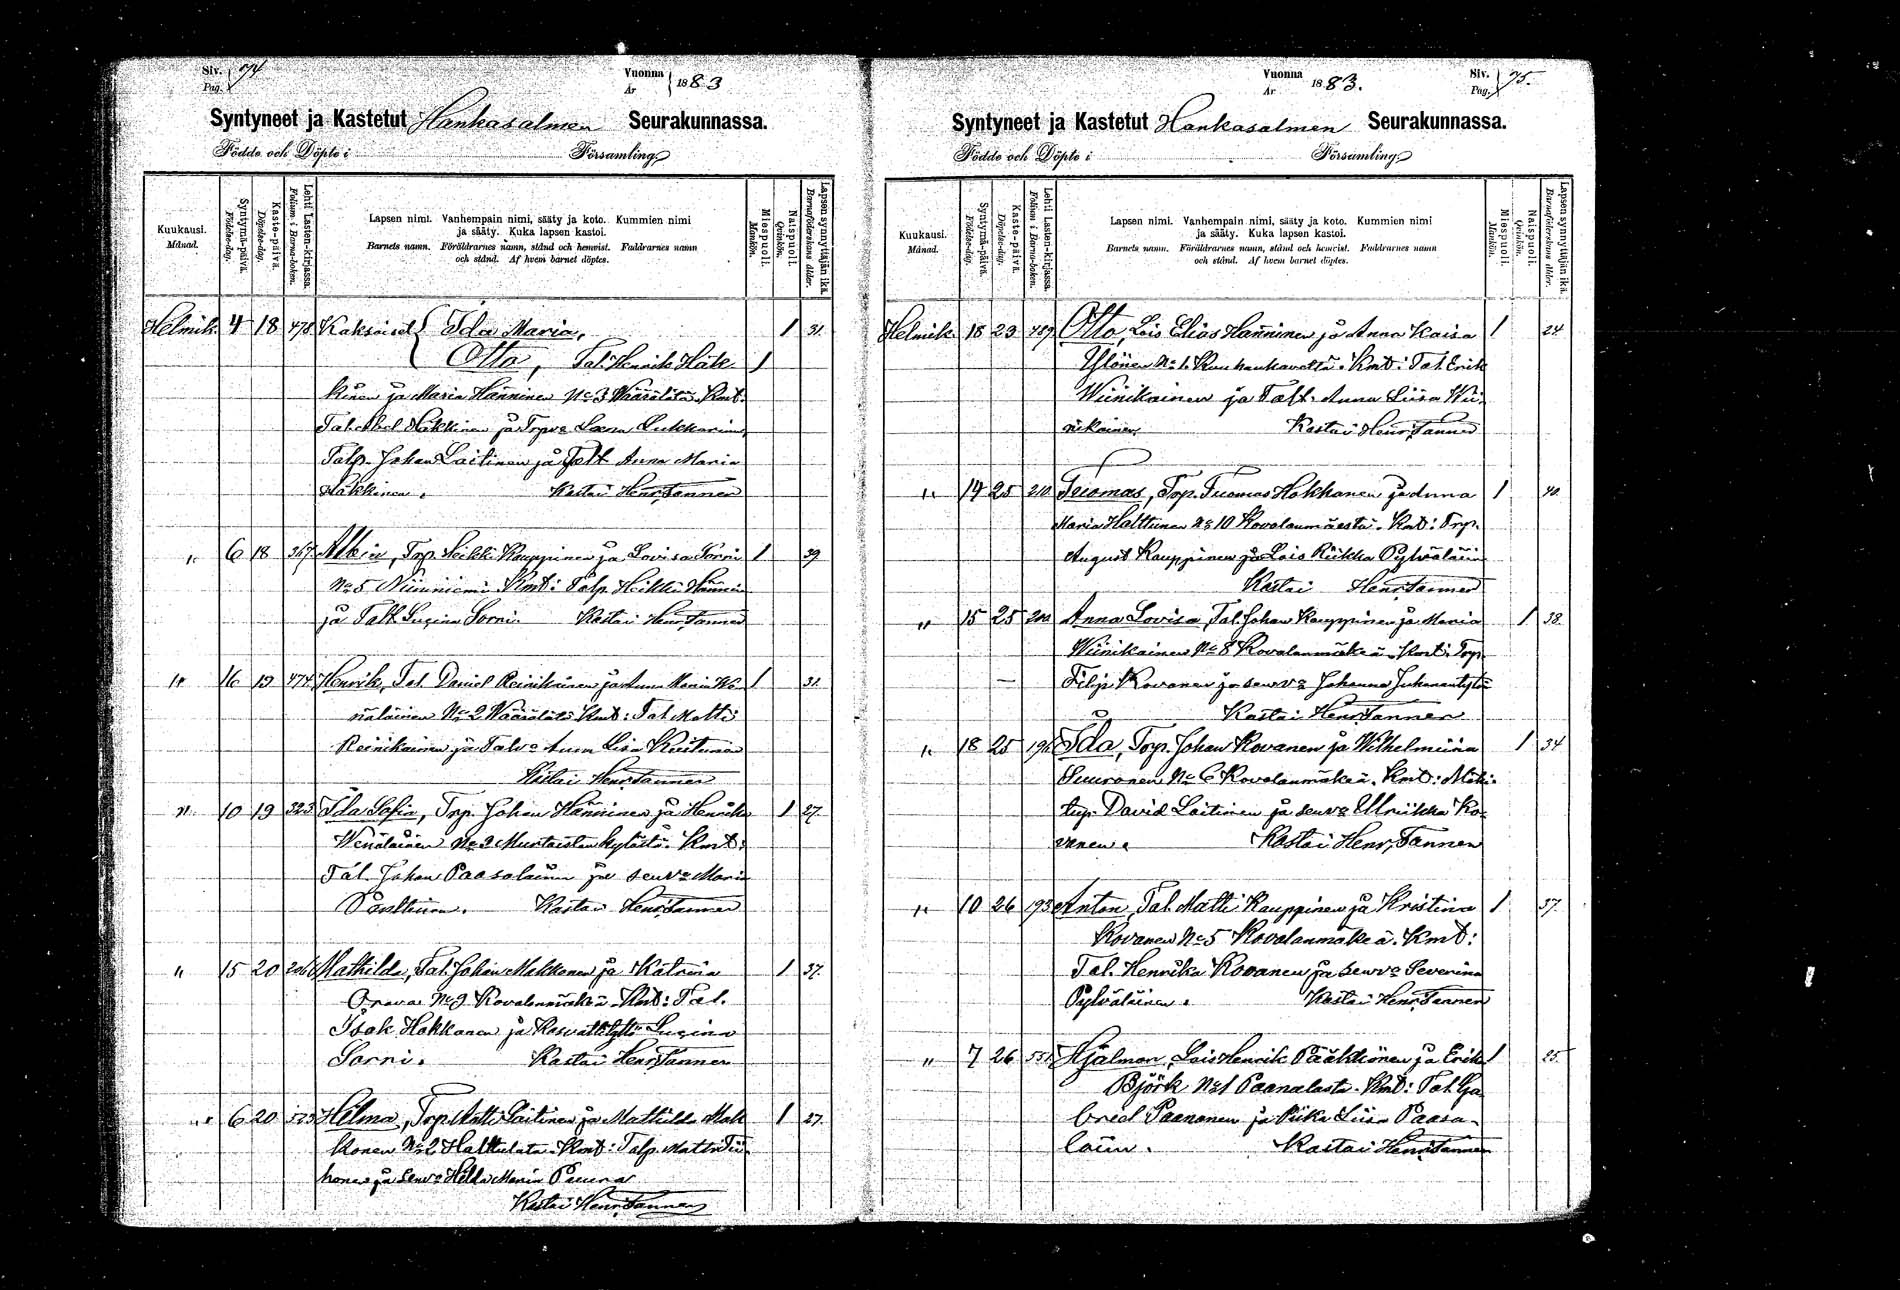 Siv. 74
Pag.
Vuonna 1883
År
Syntyneet ja Kastetut Hankasalmen Seurakunnassa.
Födde och Döpte i Församling
Kuukausi.
Månad.
Syntymä-päivä.
Födelse-dag.
Kaste-päivä.
Döpelse-dag.
Lehti Lasten-kirjassa.
Folium i Barna-boken.
Lapsen nimi. Vanhempain nimi, sääty ja koto. Kummien nimi
ja sääty. Kuka lapsen kastoi.
Barnets namn. Föräldrarnes namn, stånd och hemvist. Faddrarnes namn
och stånd. Af hvem barnet döptes.
Miespuoli.
Mankön.
Naispuoli.
Qvinkön.
Lapsen synnyttäjän ikä.
Barnaföderskans ålder.
Helmik. 4 18 478 Kaksoiset Ida Maria, 1 31.
Otto, Tal. Henrik Häk- 1
kinen ja Maria Hänninen No 3 Wäärälätä. Kmt:
Tal. Abel Häkkinen ja Trpva Leena Lukkarinen,
Talp. Johan Laitinen ja Talt Anna Maria
Häkkinen. Kastai Henr. Tannen
" 6 18 367. Albin, Trp. Heikki Kauppinen ja Lovisa Sorri 1 39
No 5 Niininiemi. Kmt: Talp. Heikki Hänninen
ja Talt. Sugina Sorri. Kastai Henr. Tannen
" 16 19 474. Henrik, Tal. David Reinikainen ja Anna Maria We- 1 31.
näläinen No 2 Wäärälätä Kmt: Tal. Matti
Reinikainen ja Talva Anna Lisa
Kastai Henr. Tannen
" 10 19 323 Ida Sofia, Trp. Johan Hänninen ja Henrika 1 27.
Wenäläinen No 2 Murtoisten kylästä. Kmt:
Tal. Johan Paasolainen ja seuva Maria
Kastai Henr. Tannen
" 15 20 206 Mathilda, Tal. Johan Mekkonen ja Katrina 1 37.
Orava No 9 Kovalanmäkeä. Kmt: Tal.
Isak Hokkanen ja Kasvattitytti Sugina
Sorri. Kastai Henr. Tannen
" 6 20 523 Helma, Trp. Matti Laitinen ja Mathilda Mak- 1 27.
konen No 2 Halttulata. Kmt: Talp. Matti Tii-
honen ja seuva Hilda Maria Paunu
Kastai Henr. Tannen
Vuonna 1883.
År
Siv. 75.
Pag.
Syntyneet ja Kastetut Hankasalmen Seurakunnassa.
Födde och Döpte i Församling
Kuukausi.
Månad.
Syntymä-päivä.
Födelse-dag.
Kaste-päivä.
Döpelse-dag.
Lehti Lasten-kirjassa.
Folium i Barna-boken.
Lapsen nimi. Vanhempain nimi, sääty ja koto. Kummien nimi
ja sääty. Kuka lapsen kastoi.
Barnets namn. Föräldrarnes namn, stånd och hemvist. Faddrarnes namn
och stånd. Af hvem barnet döptes.
Miespuoli.
Mankön.
Naispuoli.
Qvinkön.
Lapsen synnyttäjän ikä.
Barnaföderskans ålder.
Helmik. 18 23 489. Otto, Lois Elias Hänninen ja Anna Kaisa 1 24.
Ylönen No 1. Kmt: Tal. Erik
Wiinikainen ja Talt. Anna Liisa Wii-
nikainen. Kastai Henr. Tannen
" 14 25 210. Tuomas, Trp. Tuomas Hokkanen ja Anna 1 40.
Maria Halttunen No 10 Kovolanmäestä. Kmt: Trp.
August Kauppinen ja Lois Riikka Pylvöläin
Kastai Henr. Tannen
" 15 25 Anna Lovisa, Tal. Johan Kauppinen ja Maria 1 38.
Wiinikainen No 8 Kovalanmäkeä. Kmt: Trp.
Filip Kovanen ja seuva Johanna Juhanantytär
Kastai Henr. Tannen
" 18 25 196. Ida, Torp. Johan Kovanen ja Wilhelmiina 1 34
Suuronen No 6 Kovolanmäkeä. Kmt: Mäki-
tup. David Laitinen ja seuva Ulriikka Ko-
vanen. Kastai Henr. Tannen
" 10 26 193. Anton, Tal. Matti Kauppinen ja Kristina 1 37.
Kovanen No 5 Kovolanmäkeä. Kmt:
Tal. Henrika Kovanen ja seuva Severina
Pylväläinen. Kastai Henr. Tannen
" 7 26 551. Hjalmar, Lois Henrik Pääkkönen ja Erika 1 25.
Björk No 1 Paanalasta. Kmt: Tal. Ga-
briel Paananen ja Piika Liisa Paasa-
lain. Kastai Henr. Tannen